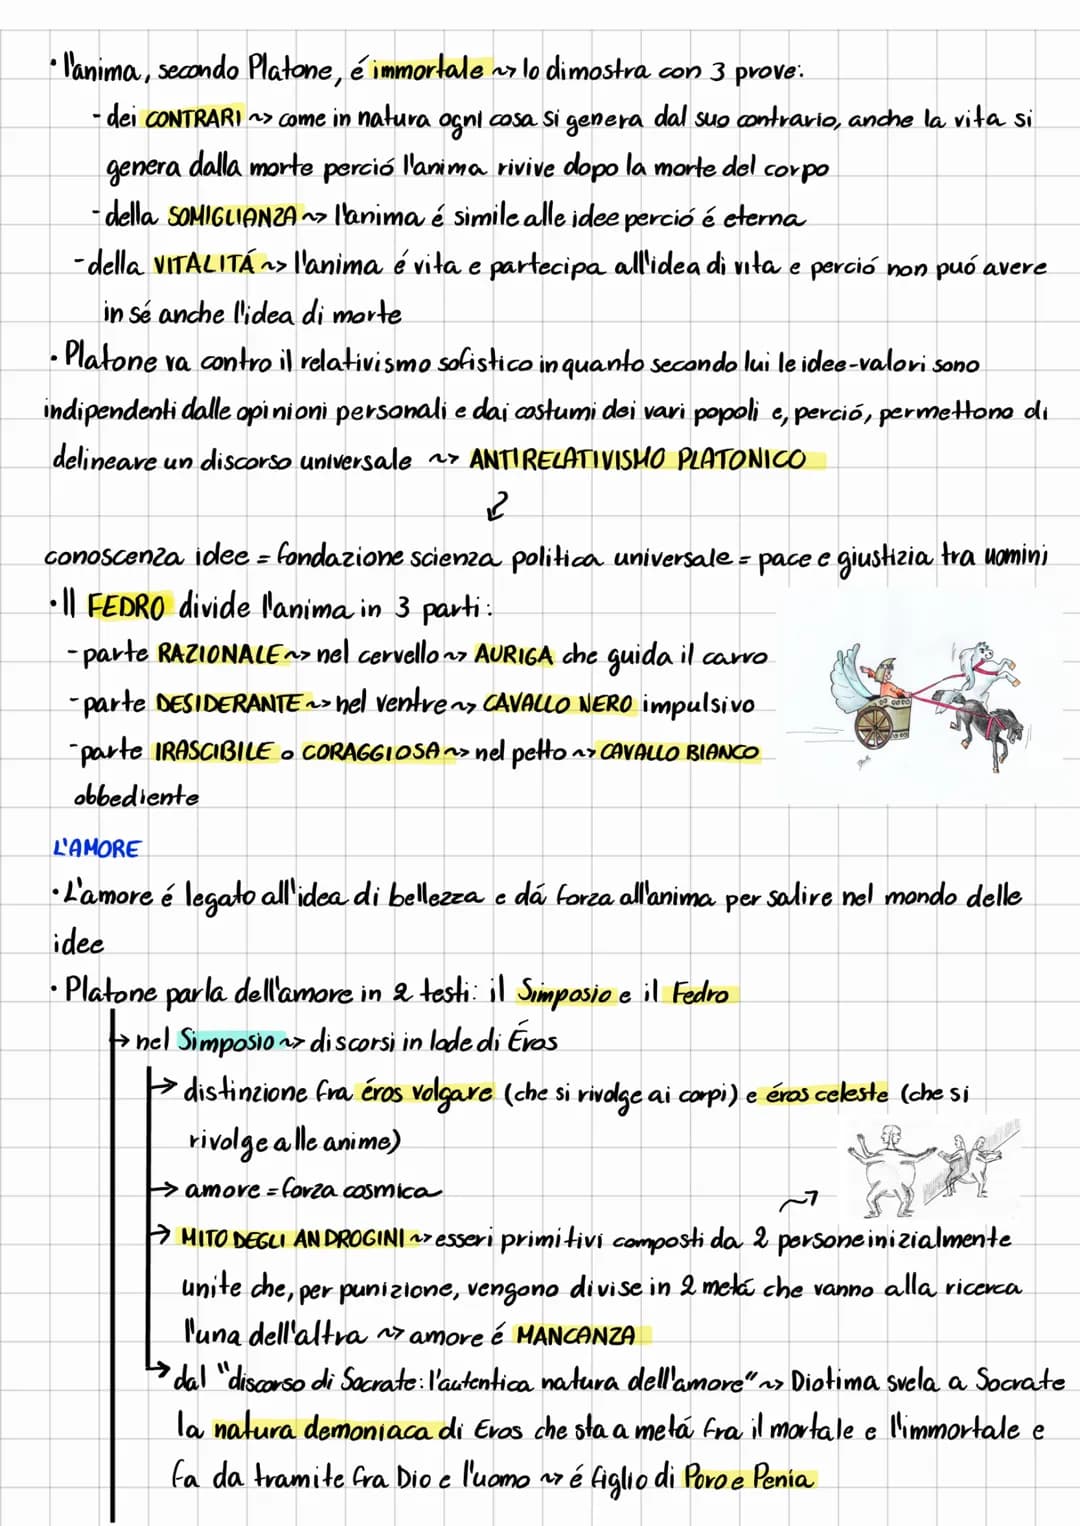 • l'anima, secondo Platone, é immortale ~> lo dimostra con 3 prove:
- dei CONTRARI ~> come in natura ogni cosa si genera dal suo contrario, anche la vita si
genera dalla morte perció l'anima rivive dopo la morte del corpo
- della SOMIGLIANZA ~> l'anima é simile alle idee perció é eterna
- della VITALITÁ ~> l'anima é vita e partecipa all'idea di vita e perció non puó avere
in sé anche l'idea di morte
• Platone va contro il relativismo sofistico in quanto secondo lui le idee-valori sono
indipendenti dalle opinioni personali e dai costumi dei vari popoli e, perció, permettono di
delineare un discorso universale ~> ANTIRELATIVISMO PLATONICO
conoscenza idee = fondazione scienza politica universale = pace e giustizia tra uomini
• Il FEDRO divide l'anima in 3 parti:
- parte RAZIONALE ~> nel cervello ~> AURIGA che guida il carro
- parte DESIDERANTE ~> nel ventre ~> CAVALLO NERO impulsivo
- parte IRASCIBILE o CORAGGIOSA ~> nel petto ~> CAVALLO BIANCO
obbediente
L'AMORE
• L'amore é legato all'idea di bellezza e dá forza all'anima per salire nel mondo delle
idee
• Platone parla dell'amore in 2 testi: il Simposio e il Fedro
→ nel Simposio ~> discorsi in lode di Éros
→ distinzione fra éros volgare (che si rivolge ai corpi) e éros celeste (che si
rivolge alle anime)
→ amore = forza cosmica
→ MITO DEGLI ANDROGINI ~> esseri primitivi composti da 2 persone inizialmente
unite che, per punizione, vengono divise in 2 metá che vanno alla ricerca
l'una dell'altra ~> amore é MANCANZA
→ dal "discorso di Socrate: l'autentica natura dell'amore" ~> Diotima svela a Socrate
la natura demoniaca di Eros che sta a metá fra il mortale e l'immortale e
fa da tramite fra Dio e l'uomo ~> é figlio di Poro e Penia